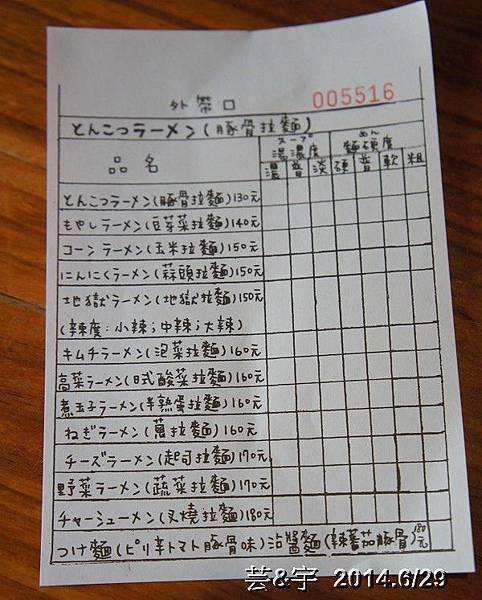 外帶口
005516
とんこつラーメン(豚骨拉麵)
品名
スープ
湯濃度
めん
麵硬度
濃 普 淡 硬 普 軟 粗
とんこつラーメン(豚骨拉麵)130元
もやしラーメン(豆芽菜拉麵)140元
コーンラーメン(玉米拉麵)150元
にんにくラーメン(蒜頭拉麵)150元
地獄ラーメン(地獄拉麵)150元
(辣度:小辣;中辣;大辣)
キムチラーメン(泡菜拉麵)160元
高菜ラーメン(日式酸菜拉麵)160元
煮玉子ラーメン(半熟蛋拉麵)160元
ねぎラーメン(蔥拉麵)160元
チーズラーメン(起司拉麵)170元
野菜ラーメン(蔬菜拉麵)170元
チャーシューメン(叉燒拉麵)180元
つけ麵(ピリ辛トマト豚骨味)沾醬麵(辣蕃茄豚骨)180元
芸&宇 2014.6/29